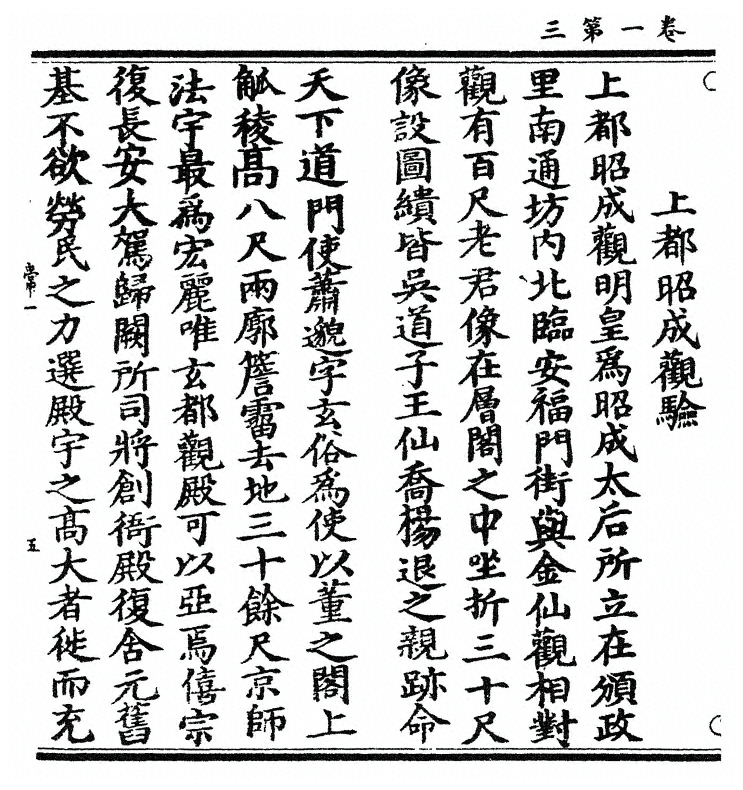 卷一第三
上都昭成觀驗
上都昭成觀明皇爲昭成太后所立在頒政
里南通坊内北臨安福門街與金仙觀相對
觀有百尺老君像在層閣之中坐折三十尺
像設圖繢皆吳道子王仙喬楊退之親跡命
天下道門使蕭邈字玄俗爲使以董之閣上
觚稜高八尺兩廊簷霤去地三十餘尺京師
法宇最爲宏麗唯玄都觀殿可以亞焉僖宗
復長安大駕歸闕所司將創衙殿復舍元舊
基不欲勞民之力選殿宇之高大者徙而充
常一
五